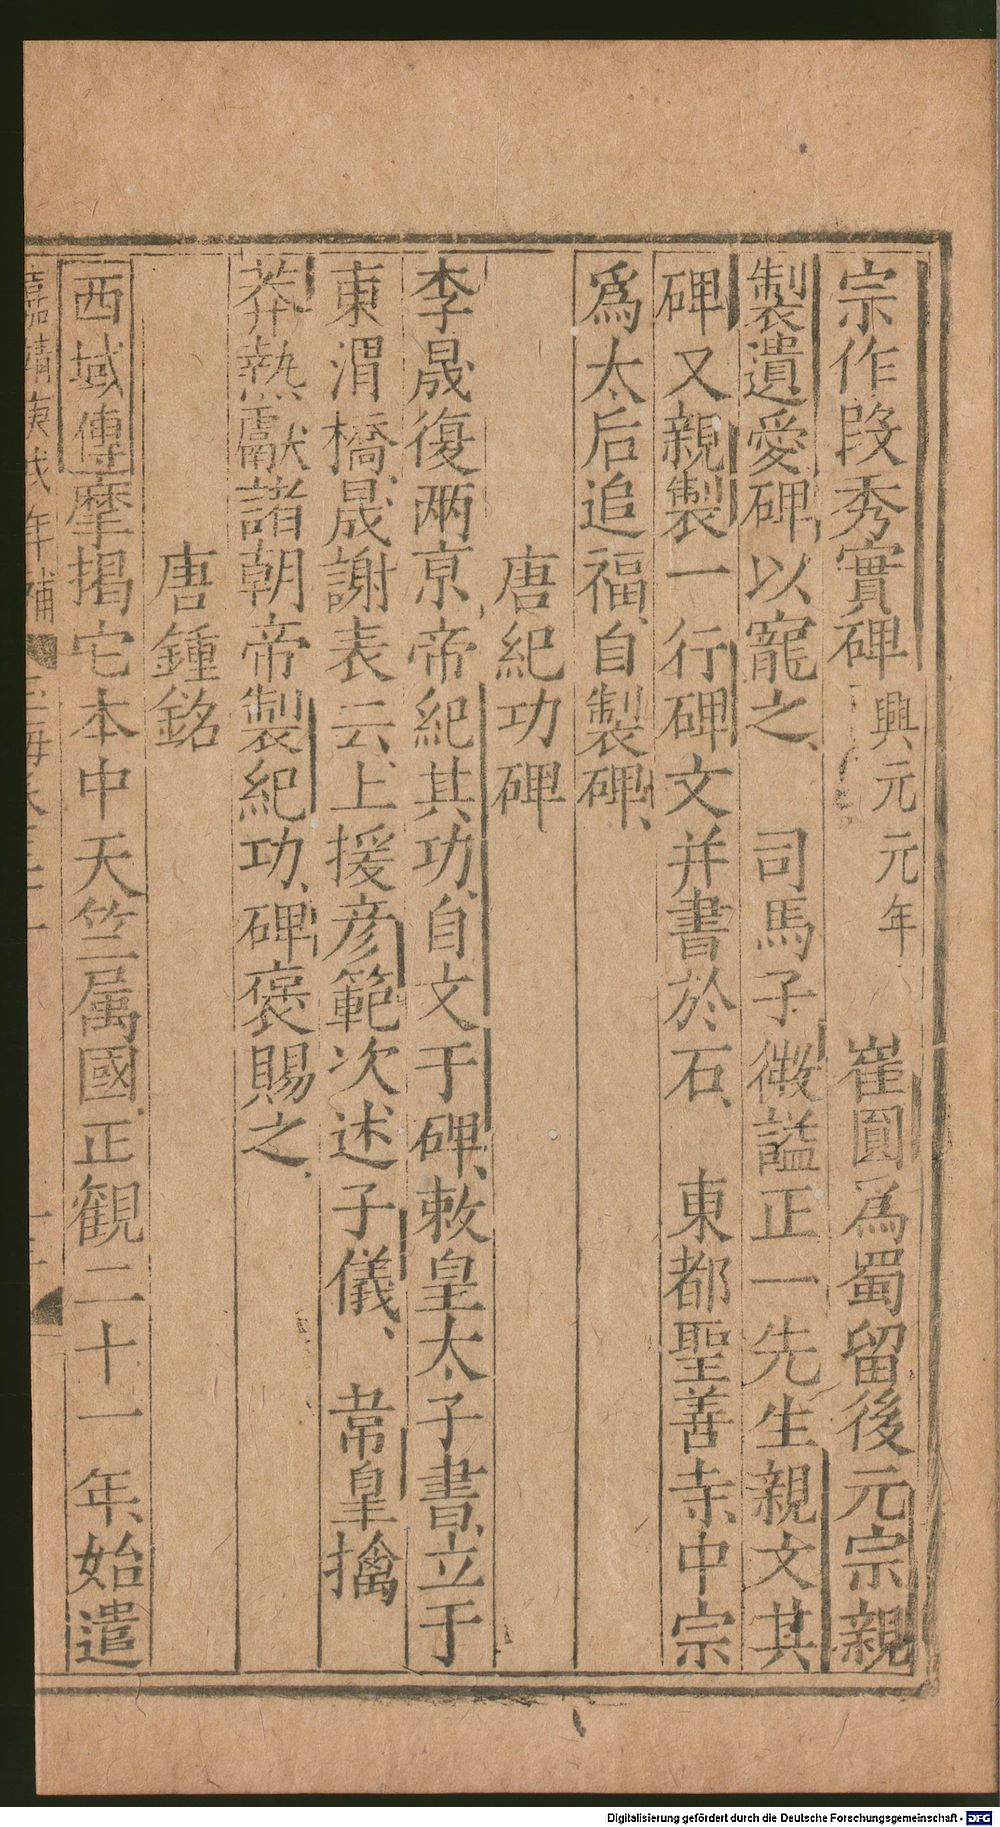 宗作段秀實碑 興元元年 崔圓爲蜀留後元宗親
製遺愛碑以寵之 司馬子微謚正一先生親文其
碑又親製一行碑文并書於石 東都聖善寺中宗
爲太后追福自製碑
唐紀功碑
李晟復兩京帝紀其功自文于碑敕皇太子書立于
東渭橋晟謝表云上援彦範次述子儀 韋皇擒
莽熱獻諸朝帝製紀功碑褒賜之
唐鍾銘
西域傳摩揭它本中天竺属國正観二十一年始遣
嘉靖庚戌年補
Digitalisierung gefördert durch die Deutsche Forschungsgemeinschaft - DFG